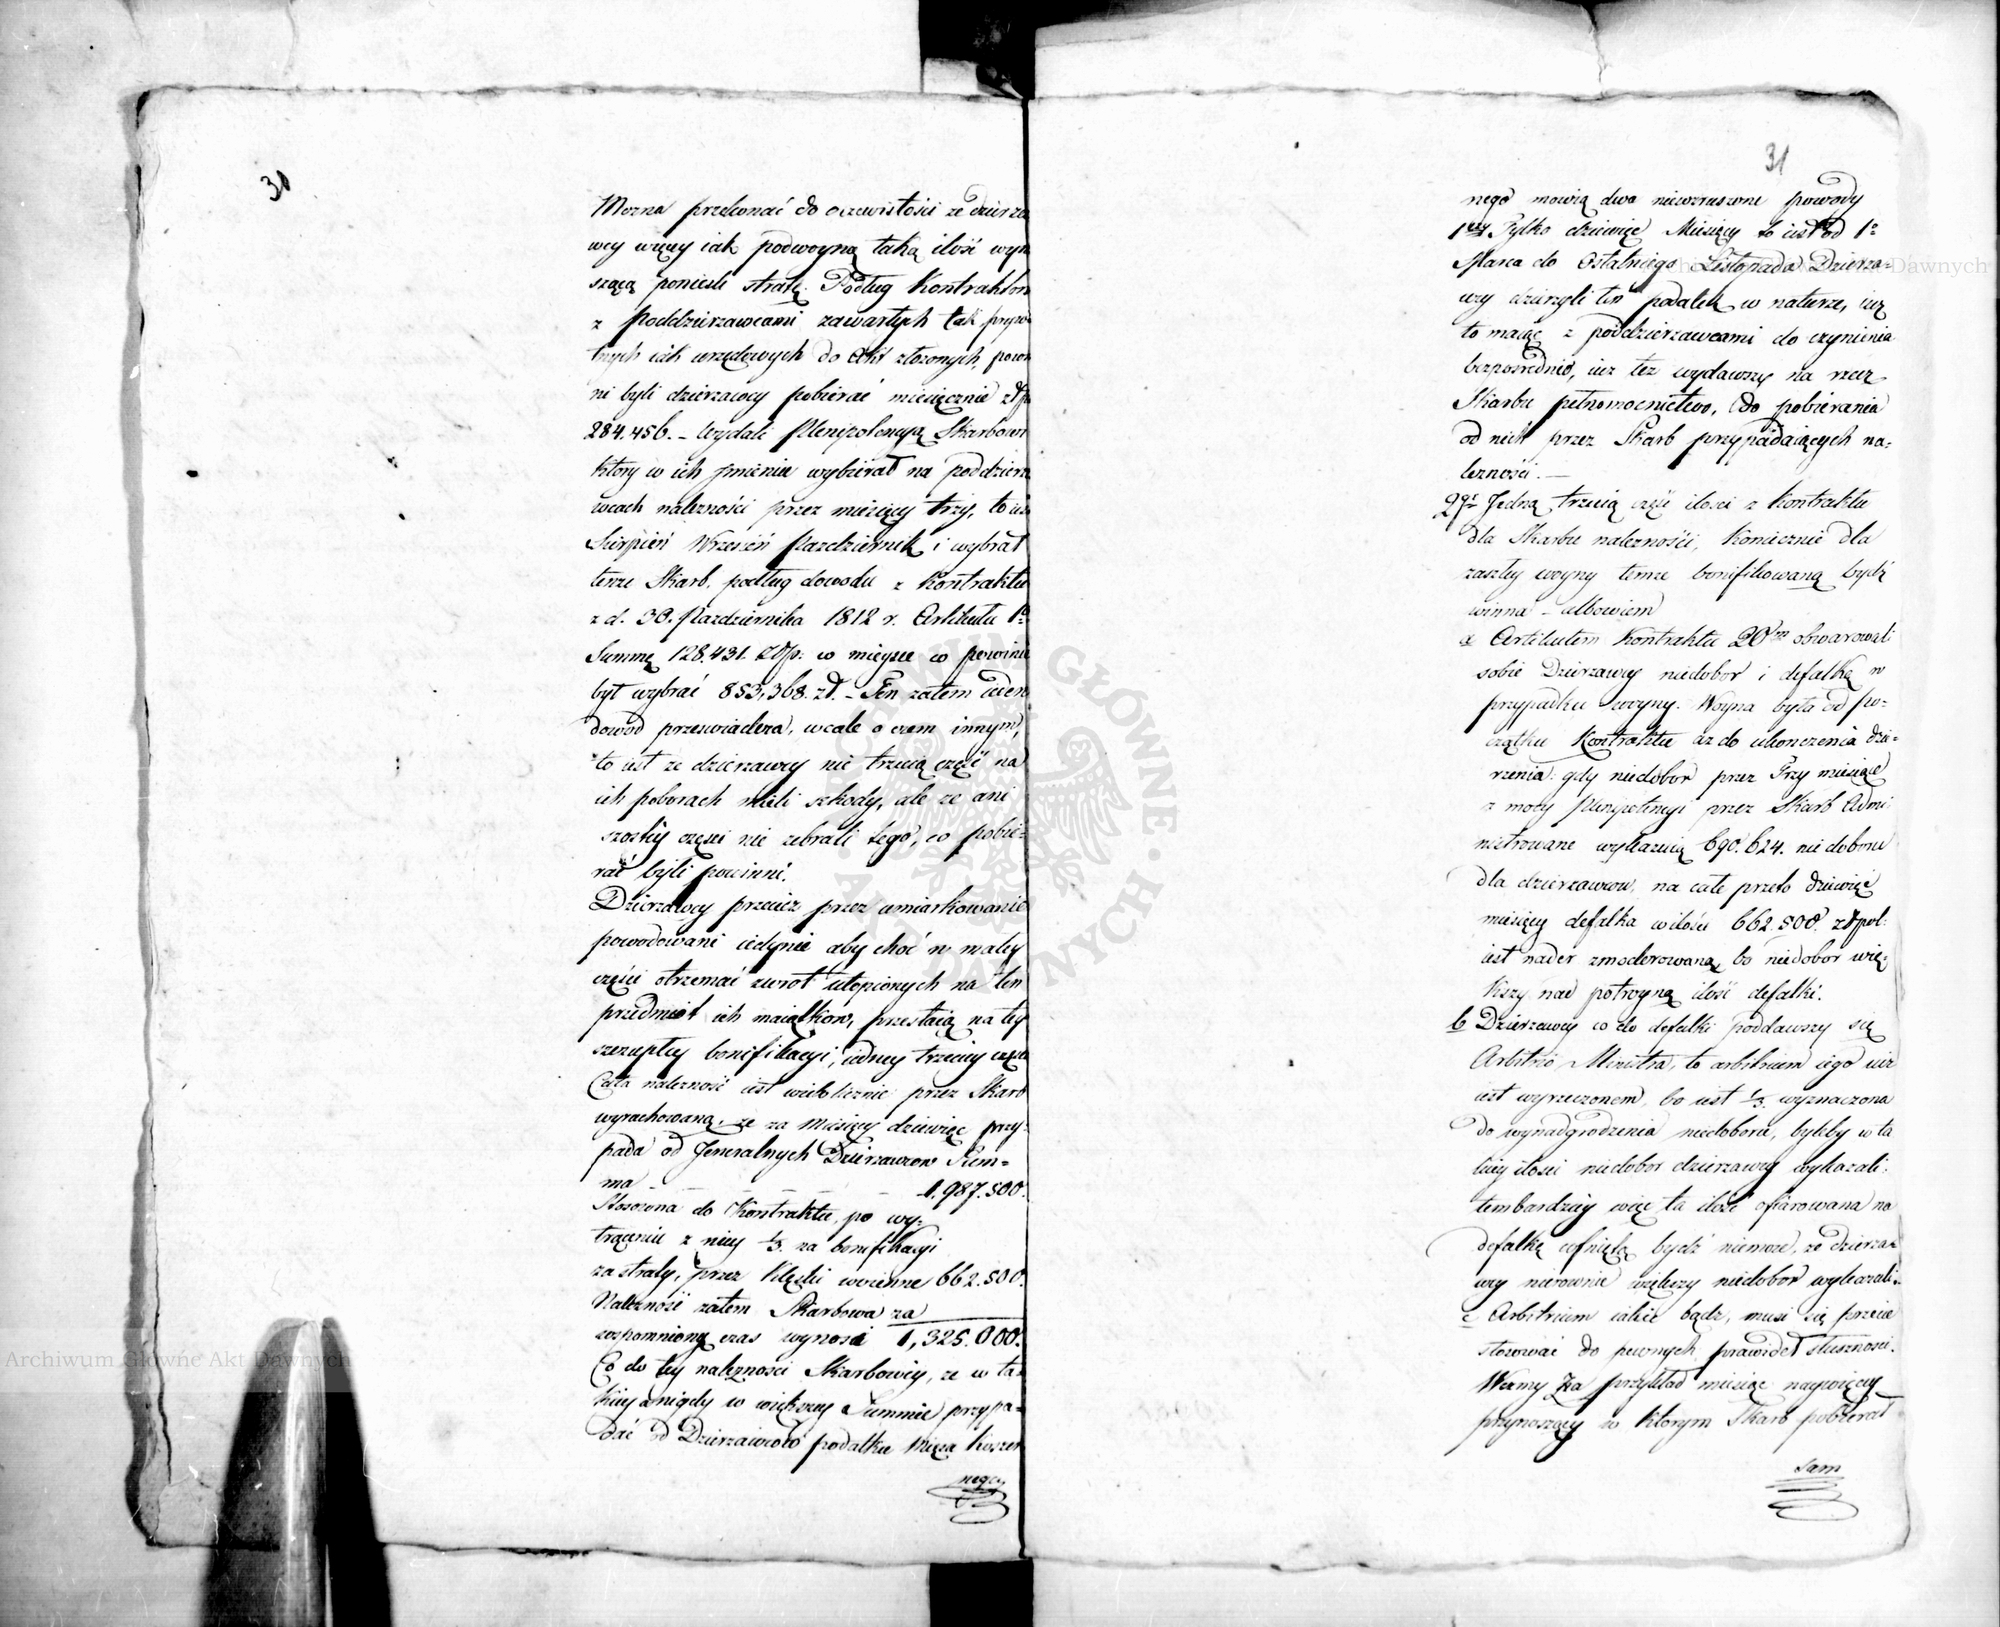 30
Mozna przekonać do oczewistości ze dzierza
wcy więcey iak podwoyną taką ilość wyn
szącą ponieśli stratę. Podług Kontraktow
z Poddzierzawcami zawartych tak prywa
tnych iak urzędowych do Akt złozonych, powin
ni byli dzierzawcy pobierać miesięcznie złp
284.456. – Wydali Plenipotencyą Skarbowi
ktory w ich jmieniu wybierał na poddzierza
wcach nalezności przez miesięcy trzy, to iest
Sierpień Wrzesień Pazdziernik i wybrał
tenze Skarb, podług dowodu z Kontraktu
z d. 30. Pazdziernika 1812 r. Artikułu 1º
Summę 128.431. Złp: w mieysce co powinien
był wybrać 853,368. zł. – Ten zatem ieden
dowod przeswiadcza, wcale o czem innym,
to iest ze dzierzawcy nie trzecią część na
ich poborach mieli szkody, ale ze ani
szostey części nie zebrali tego, co pobie-
rać byli powinni.
Dzierzawcy przeciez przez umiarkowanie
powodowani iedynie aby choć w małey
części otrzemać zwrot utopionych na ten
przedmiot ich maiątkow, przestaią na tey
szczupłey bonifikacyi, iedney trzeciey części
Cała nalezność iest wielolicznie przez Skarb
wyrachowaną, ze za Miesięcy dziewięc przy-
pada od Jeneralnych Dzierzawcow Sum-
ma – – – – – 1.987.500.
Stosowna do Kontraktu, po wy-
trąceniu z niey 1/3. za bonifikacyi
za straty, przez klęski woienne 662.500.
Nalezność zatem Skarbowa za
wspomniony czas wynosi 1,325.000.
Co do tey nalezności Skarbowey, ze w ta-
kiey a nigdy w większey Summie przypa-
dać od Dzierzawcow podatku Mięsa koszer
negø
31
nego mowią dwa niewzruszone powody
1wszy Tylko dziewięć Miesięcy to iest od 1º
Marca do Ostatniego Listopada Dzierza-
wcy dzierzyli ten podatek w naturze, iuz
to maiąc z poddzierzawcami do czynienia
bezposrednio, iuz tez wydawszy na rzecz
Skarbu pełnomocnictwo, do pobierania
od nich przez Skarb przypadaiących na-
lezności. –
2gi Jedną trzecią część ilości z kontraktu
dla Skarbu nalezności, koniecznie dla
zaszłey woyny temze bonifikowaną bydź
winna – albowiem
a Artikułem Kontraktu 20m obwarowali
sobie Dzierzawcy niedobor i defalkę w
przypadku woyny. Woyna była od po-
czątku Kontraktu az do ukonczenia dzie-
rzenia: gdy niedobor przez Trzy miesiące
z mocy Plenipotencyi przez Skarb Admi
nistrowane wykazuią 690.624. niedoboru
dla dzierzawcow, na całe przeto dziewięć
miesięcy defalka w ilości 662.500. złpol:
iest nader zmoderowaną, bo niedobor wię-
kszy nad potroyną ilość defalki.
b Dzierzawcy co do defalki poddawszy się
Arbitrio Ministra, to arbitrium iego iuz
iest wyrzeczonem, bo iest 1/3. wyznaczona
do wynadgrodzenia niedoboru, byleby w ta
kiey ilości niedobor dzierzawcy wykazali:
tembardziey więc ta ilość ofiarowana na
defalkę cofniętą bydź niemoze, ze dzierza-
wcy nierownie większy niedobor wykazali.
c Arbitrium iakie bądz, musi się przecie
stosować do pewnych prawideł słuszności.
Wezmy Za przykład miesiąc naywięcey
przynoszący w ktorym Skarb pobierał
sam